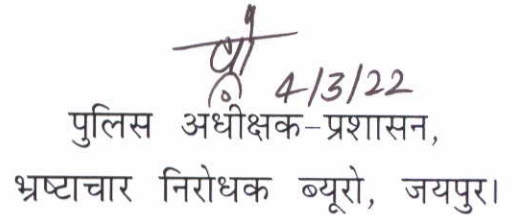 4/3/22
पुलिस अधीक्षक-प्रशासन,
भ्रष्टाचार निरोधक ब्यूरो, जयपुर।